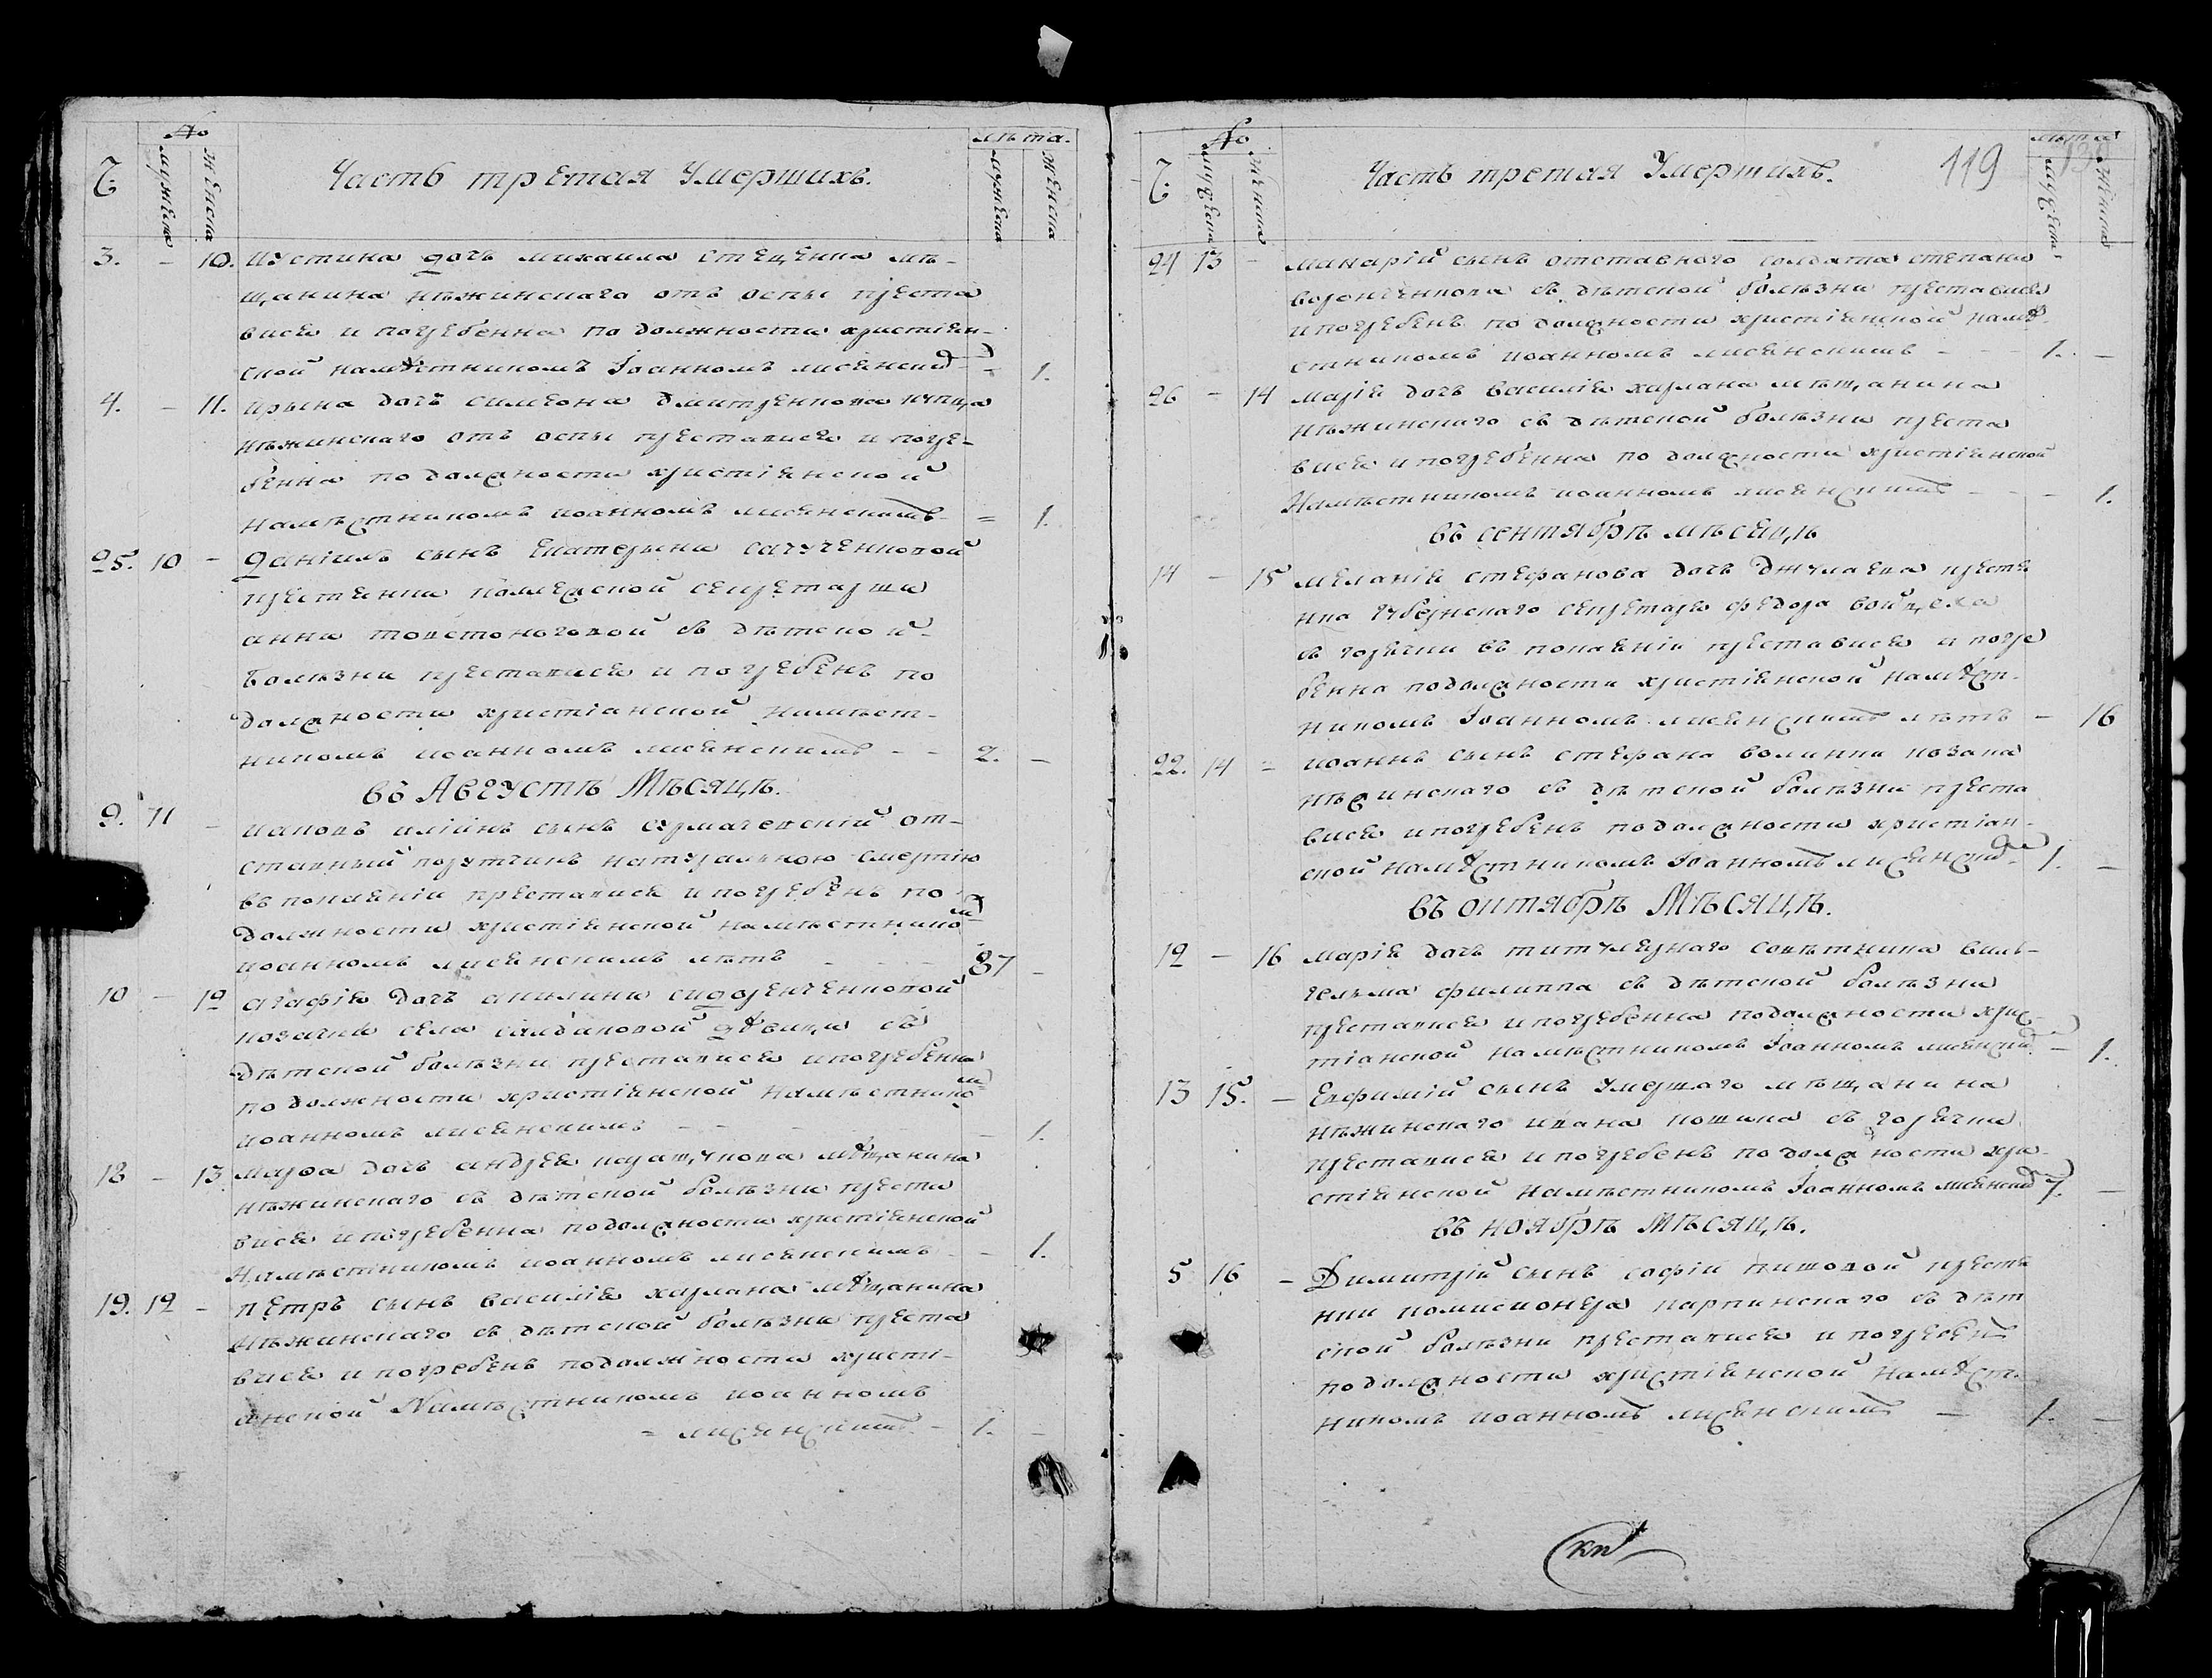 №
лѣта.
Ч.
мужеска
женска
Часть третая Умершихъ.
мужеска
женска
3. – 10. Иустина дочь михаила стец,енка мѣ-
щанина нѣжинскаго отъ оспы преста
вися и погребенна по должности христіян-
ской намѣстникомъ Іоанномъ лисянским – 1.
4. – 11. ирына дочь симеона дмитренкова купца
нѣжинскаго отъ оспы преставися и погре-
бенна по должности христіянской
намѣстникомъ иоанномъ лисянскимъ = 1.
25. 10 – Даніилъ сынъ екатерыни
крестянки секретарши
анни въ дѣтской
болѣзни преставися и погребенъ по
должности христіанской намѣст-
никомъ иоанномъ лисянскимъ – – 2. –
въ Августѣ Мѣсяцѣ.
9. 11 – иаковъ илїинъ сынъ от-
ставный порутчикъ натуральною смертію
въ покаяніи преставися и погребенъ по
должности христіянской намѣстником
иоанномъ лисянскимъ лѣтъ – – 87 –
10 – 12 агафія дочь акилини
козачки села дѣвици въ
дѣтской болѣзни преставися и погребенна
по должности христіянской намѣстником
иоанномъ лисянскимъ – – – 1.
18 – 13 марфа дочь андрея мѣщанина
нѣжинскаго въ дѣтской болѣзни преста
вися и погребенна по должности христіянской
Намѣстникомъ иоанномъ лисянскимъ – – 1.
19. 12 – петръ сынъ василія харлана мѣщанина
нѣжинскаго въ дѣтской болѣзни преста
вися и погребенъ по должности христі-
анской Намѣстникомъ иоанномъ
= лисянскимъ – 1. –
№
119
лѣта
Ч.
мужеска
женска
Часть третая Умершихъ.
мужеска
женска
24 13 – макарій сынъ отставного солдата степана
въ дѣтской болѣзни преставися
и погребенъ по должности христіянской намѣ
стникомъ иоанномъ лисянскимъ – – – 1. –
26 – 14 марія дочь василія харлана мѣщанина
нѣжинскаго въ дѣтской болѣзни преста
вися и погребенна по должности христіянской
Намѣстникомъ иоанномъ лисянскимъ – – – 1.
въ сентябрѣ мѣсяцѣ
14 – 15 меланія стефанова дочь крестя
нка губернскаго секретаря федора
въ горячки въ покаяніи преставися и погре
бенна по должности христіянской намѣст-
никомъ Іоанномъ лисянскимъ лѣтъ – 16
22. 14 – иоаннъ сынъ стефана козака
нѣжинскаго въ дѣтской болѣзни преста
вися и погребенъ по должности христіан-
ской намѣстникомъ Іоанномъ лисянским – 1. –
въ октябрѣ Мѣсяцѣ.
12 – 16 марія дочь титулярнаго совѣтника виль-
гельма филиппа въ дѣтской болѣзни
преставися и погребенна по должности хрис-
тіанской намѣстникомъ Іоанномъ лисянским – 1.
13 15. – Евфимій сынъ умершаго мѣщанина
нѣжинскаго ивана кошика въ горячки
преставися и погребенъ по должности хри-
стіянской намѣстникомъ Іоанномъ лисянским 7. –
въ ноябрѣ Мѣсяцѣ.
5 16 – Димитрій сынъ софіи крестя
нки комисионера карпинскаго въ дѣт
ской болѣзни преставися и погребенъ
по должности христіянской намѣст-
никомъ иоанномъ лисянскимъ – 1. –